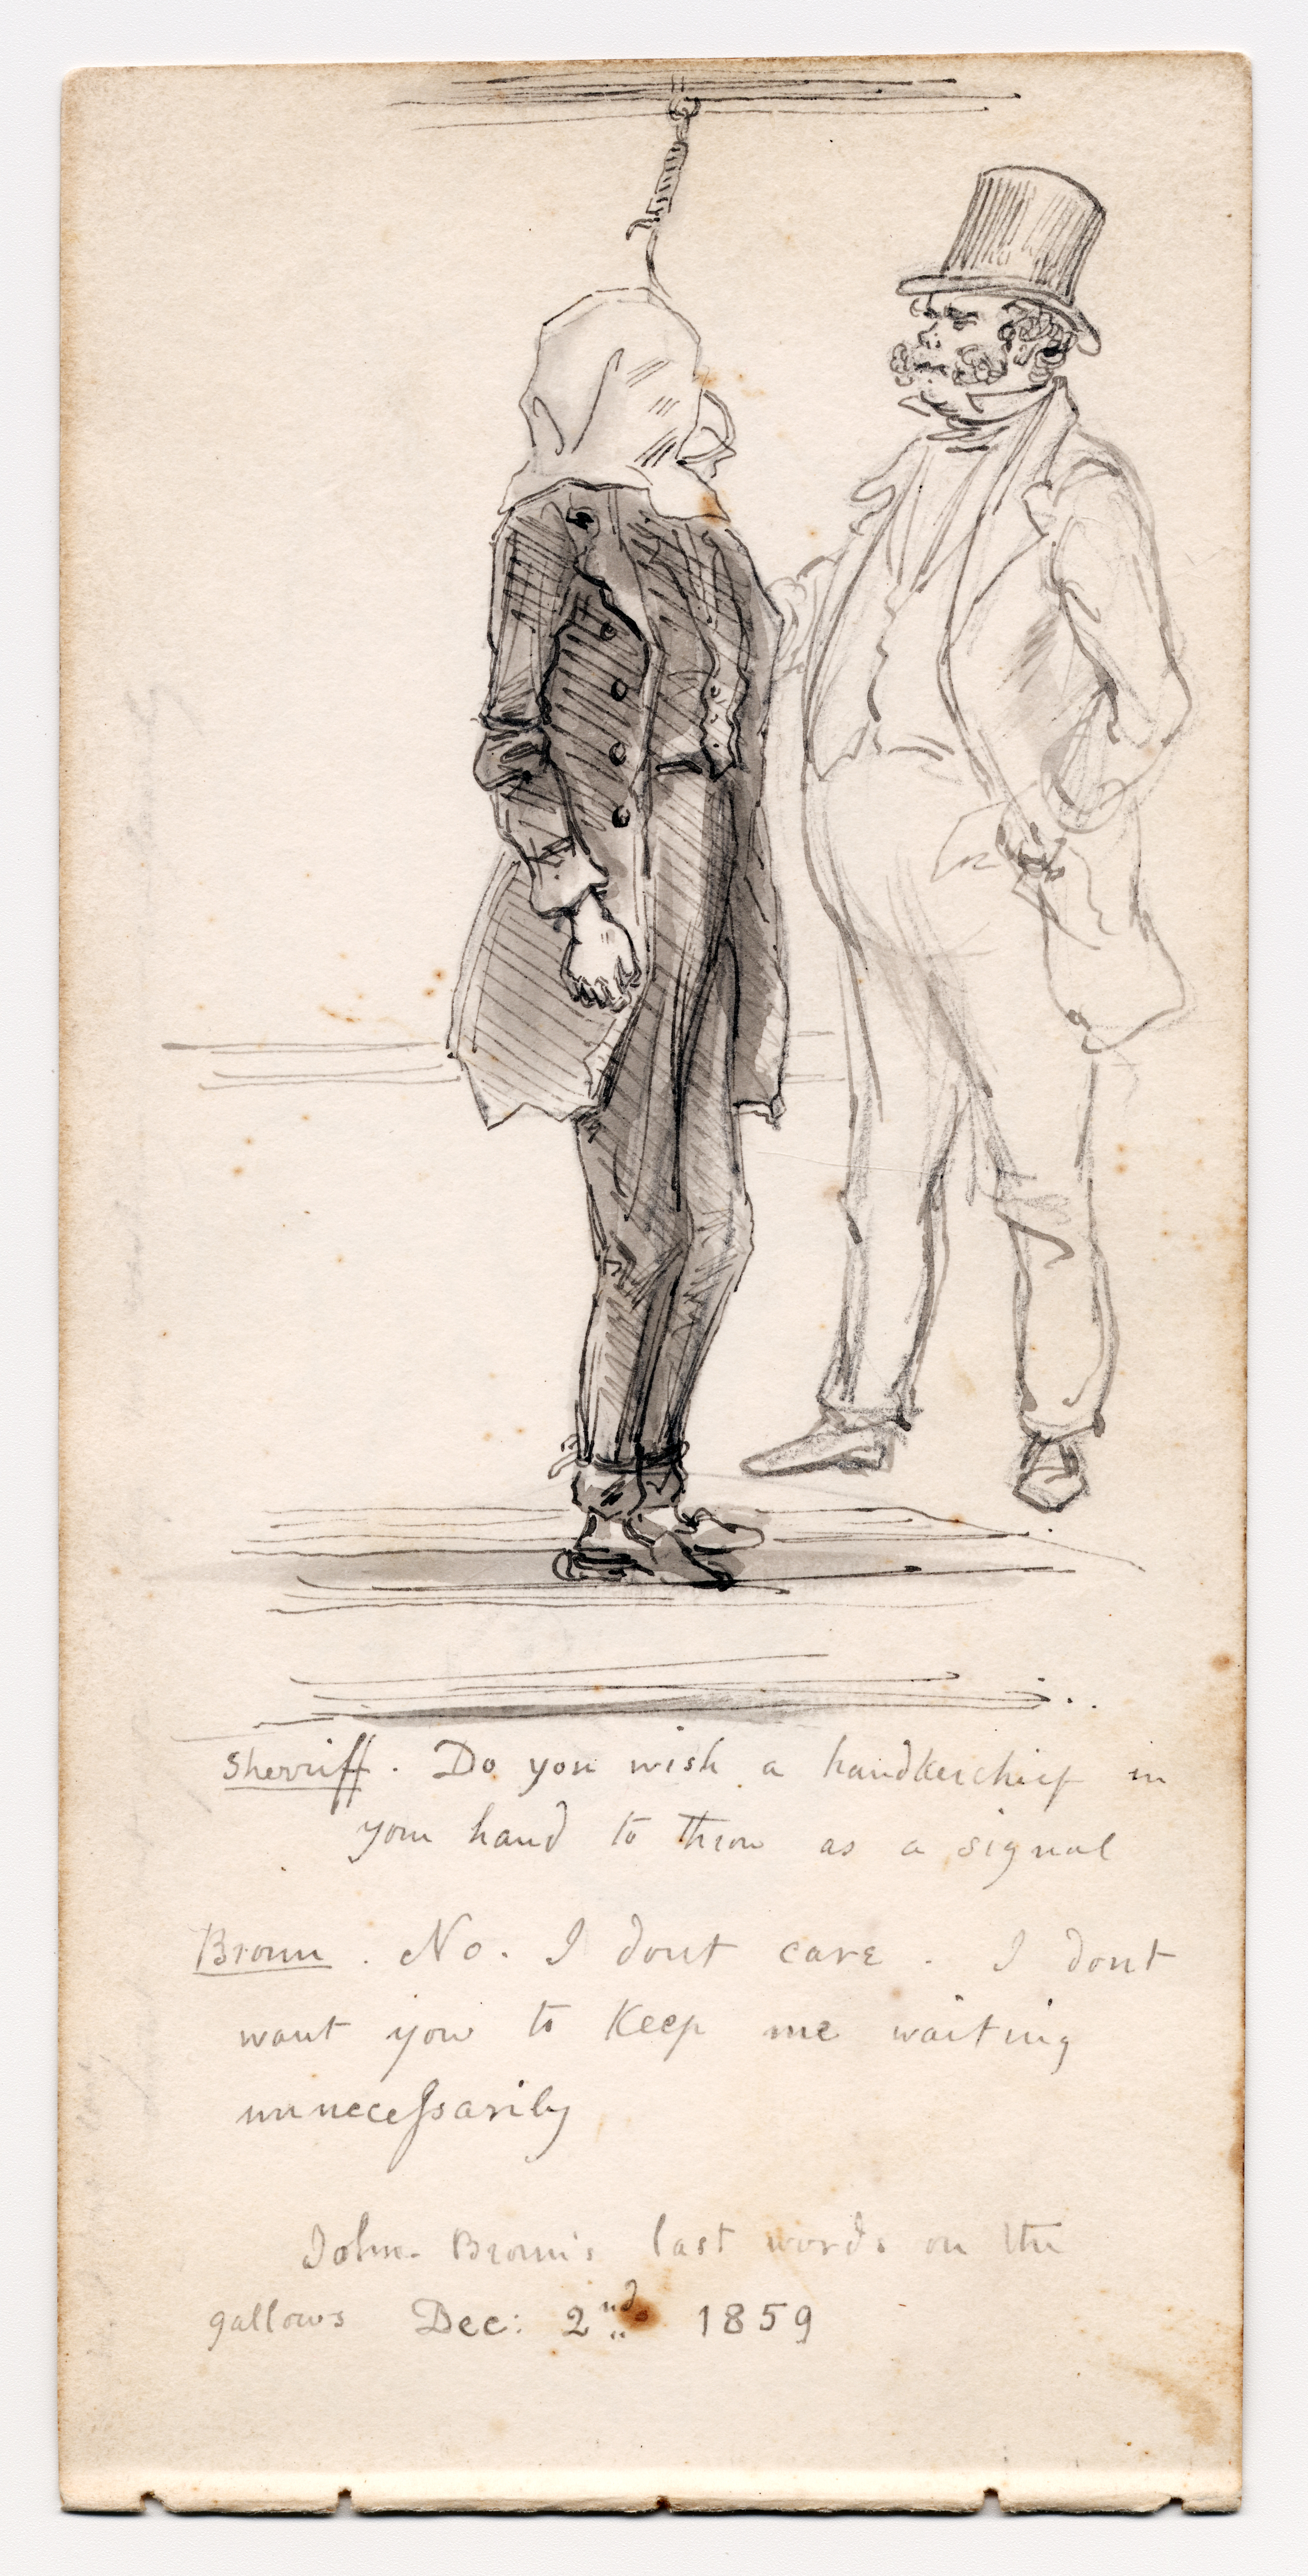 Sherriff. Do you wish a handkerchief in
your hand to throw as a signal
Brown. No. I dont care. I dont
want you to Keep me waiting
unnecessarily
John Brown's last words on the
gallows Dec: 2nd 1859